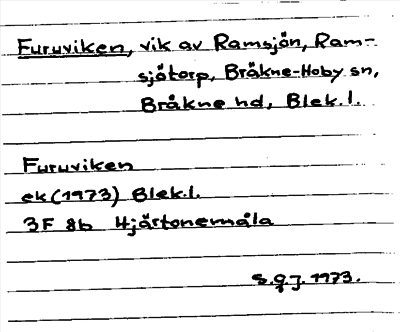 Furuviken, vik av Ramsjön, Ram-
sjötorp, Bräkne-Hoby sn,
Bräkne hd, Blek.l.
Furuviken
ek (1973) Blek.l.
3F 8b Hjärtonemåla
S.G.J. 1973.